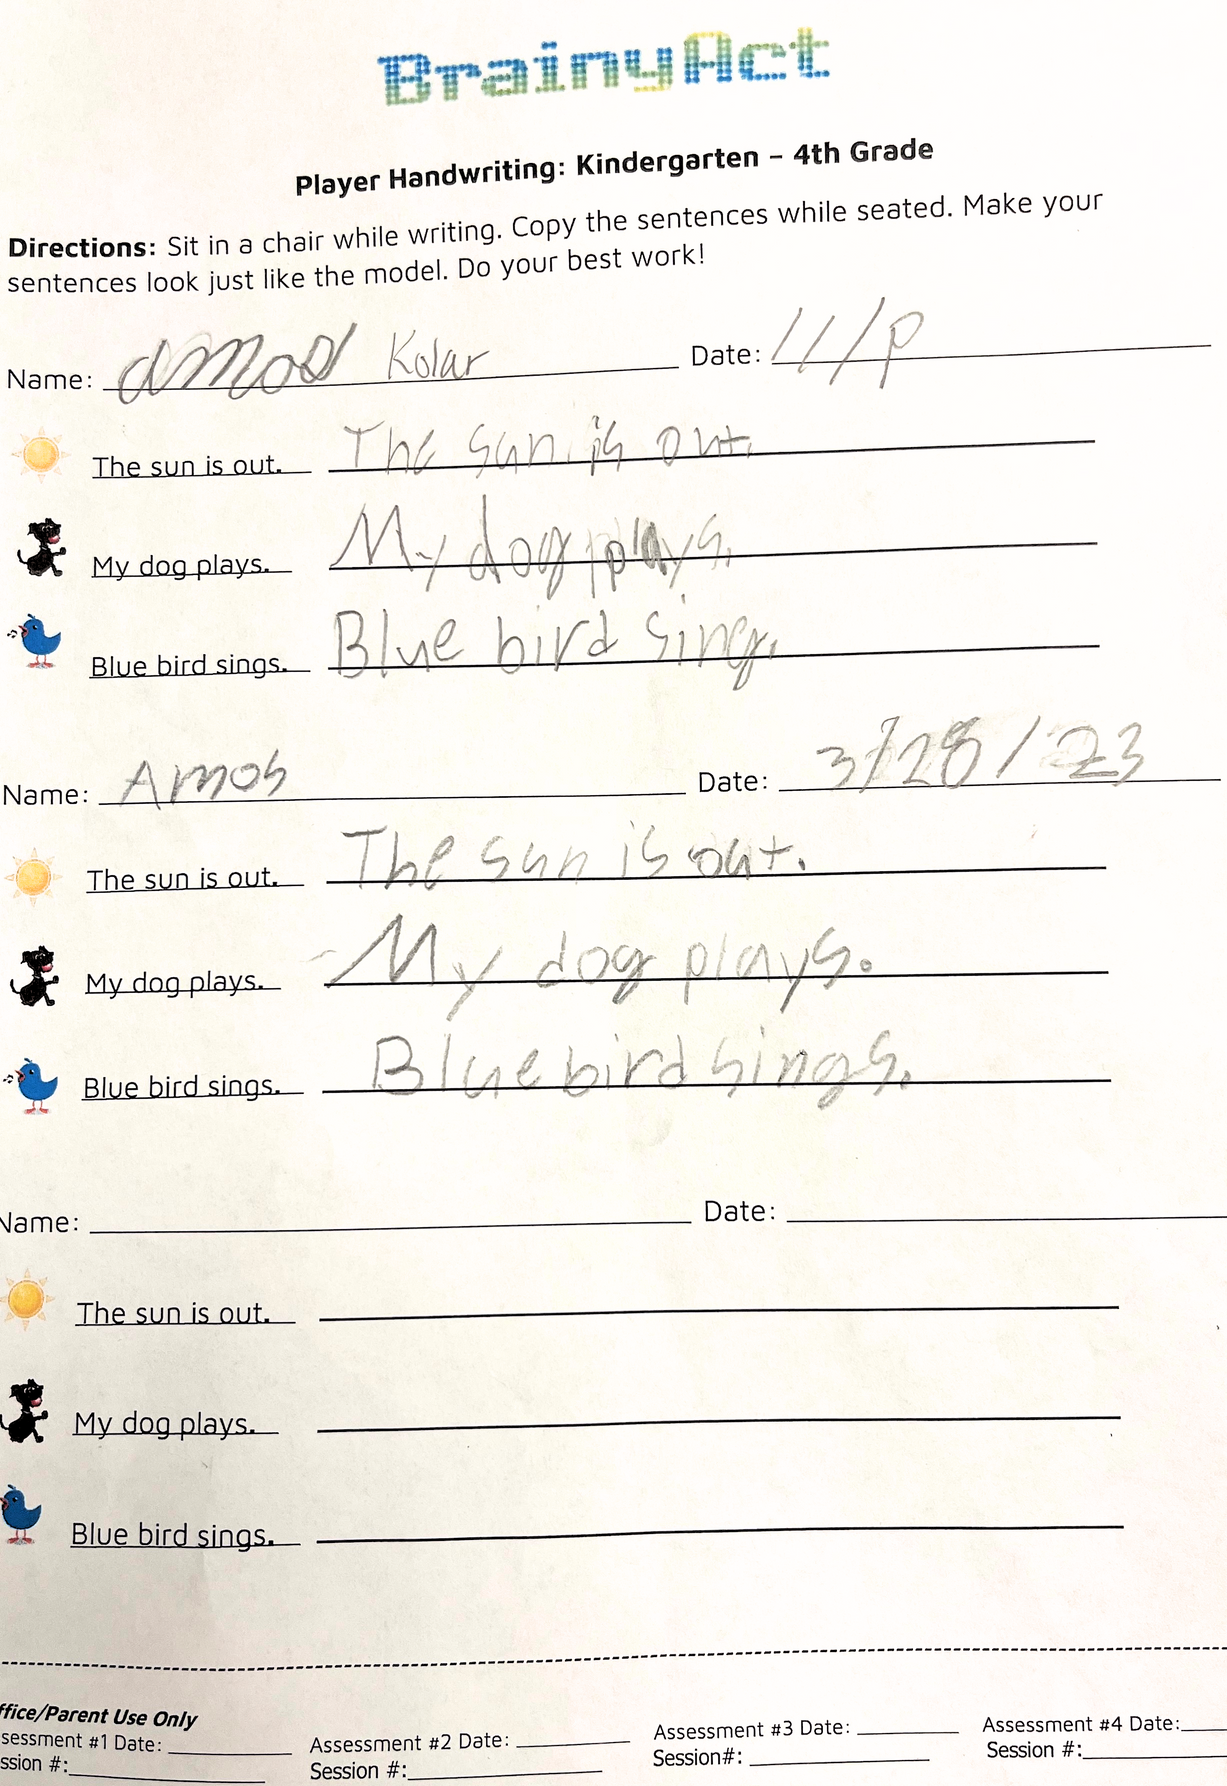 BrainyAct
Player Handwriting: Kindergarten – 4th Grade
Directions: Sit in a chair while writing. Copy the sentences while seated. Make your
sentences look just like the model. Do your best work!
Name: amos Kolar Date: 11/9
The sun is out. The sun is out.
My dog plays. My dog plays.
Blue bird sings. Blue bird sing.
Name: Amos Date: 3/28/23
The sun is out. The sun is out.
My dog plays. My dog plays.
Blue bird sings. Blue bird sings.
Name: Date:
The sun is out.
My dog plays.
Blue bird sings.
ffice/Parent Use Only
sessment #1 Date: Assessment #2 Date: Assessment #3 Date: Assessment #4 Date:
ssion #: Session #: Session#: Session #: